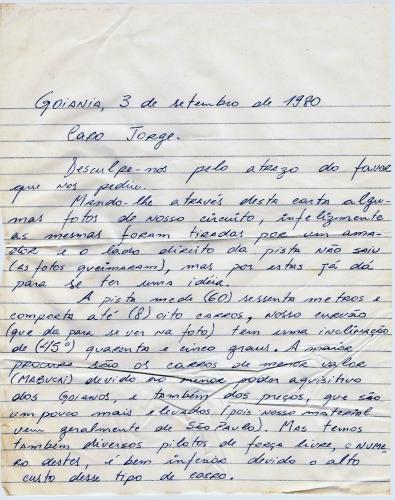 GOIANIA, 3 de setembro de 1980
Caro Jorge.
Desculpe-nos pelo atrazo do favor
que nos pediu.
Mando-lhe através desta carta algu-
mas fotos de nosso circuito, infelizmente
as mesmas foram tiradas por um ama-
dor e o lado direito da pista não saiu
(as fotos queimaram), mas por estas já dá
para se ter uma idéia.
A pista mede (60) sessenta metros e
comporta até (8) oito carros, nosso curvão
(que da para se ver na foto) tem uma inclinação
de (45º) quarenta e cinco graus. A maior
procura são os carros de menor valor
(MABUCHI) devido ao menor poder aquisitivo
dos Goianos, e também dos preços, que são
um pouco mais elevados (pois nosso material
vem geralmente de São Paulo). Mas temos
também diversos pilotos de força livre, o nume-
ro destes, é bem inferior devido o alto
custo desse tipo de carro.